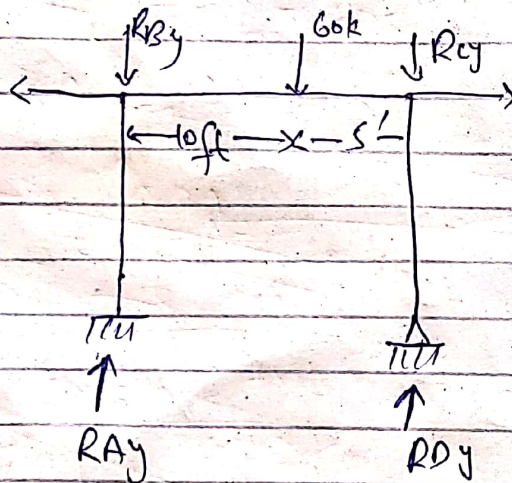 RBy 60k Rcy
10ft 5'
RAy RDy